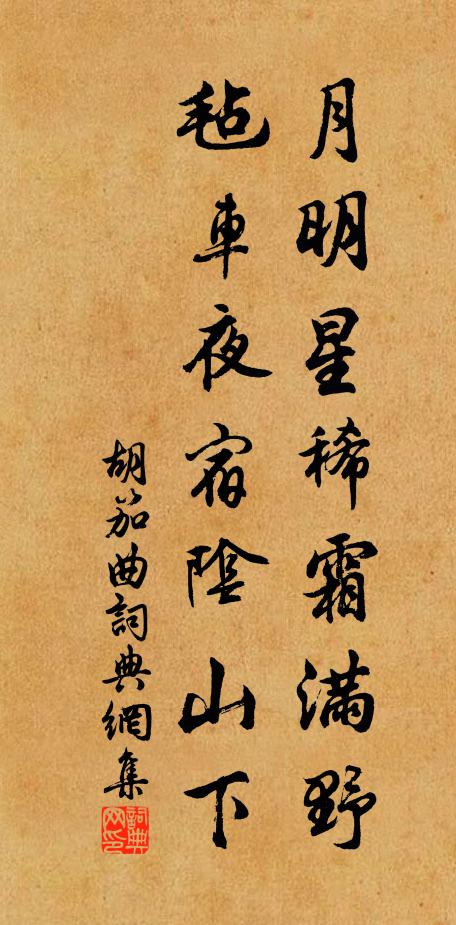 月明星稀霜满野
毡車夜宿陰山下
胡笳曲詞典網集
詞典
网印